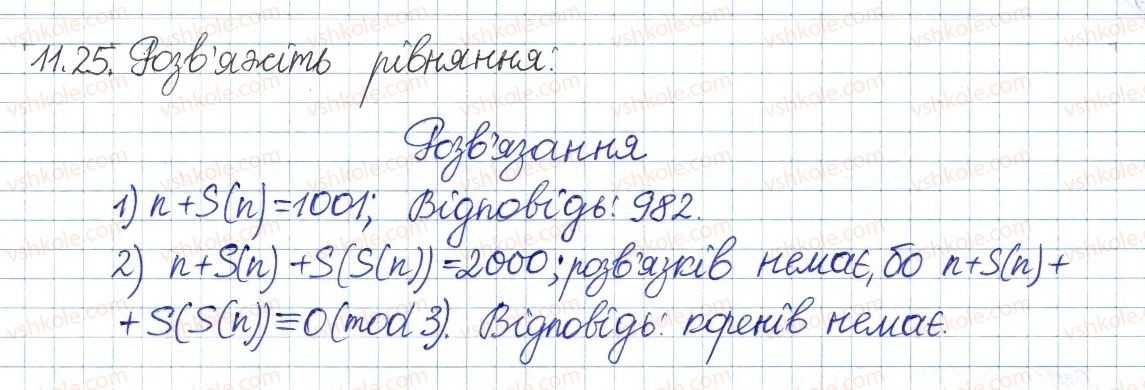 11.25. Розв'яжіть рівняння:
Розв'язання
1) n+S(n)=1001; Відповідь: 982.
2) n+S(n)+S(S(n))=2000; розв'язків немає, бо n+S(n)+
+S(S(n))≡0(mod 3). Відповідь: коренів немає.